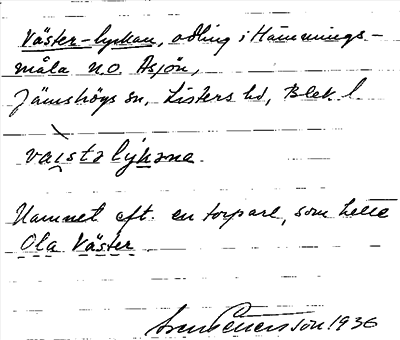 Väster-lyckan, odling i Hämmings-
måla n.o. Åsjön,
Jämshögs sn, Listers hd, Blek. l.
Namnet eft. en torpare, som hette
Ola Väster.
1936